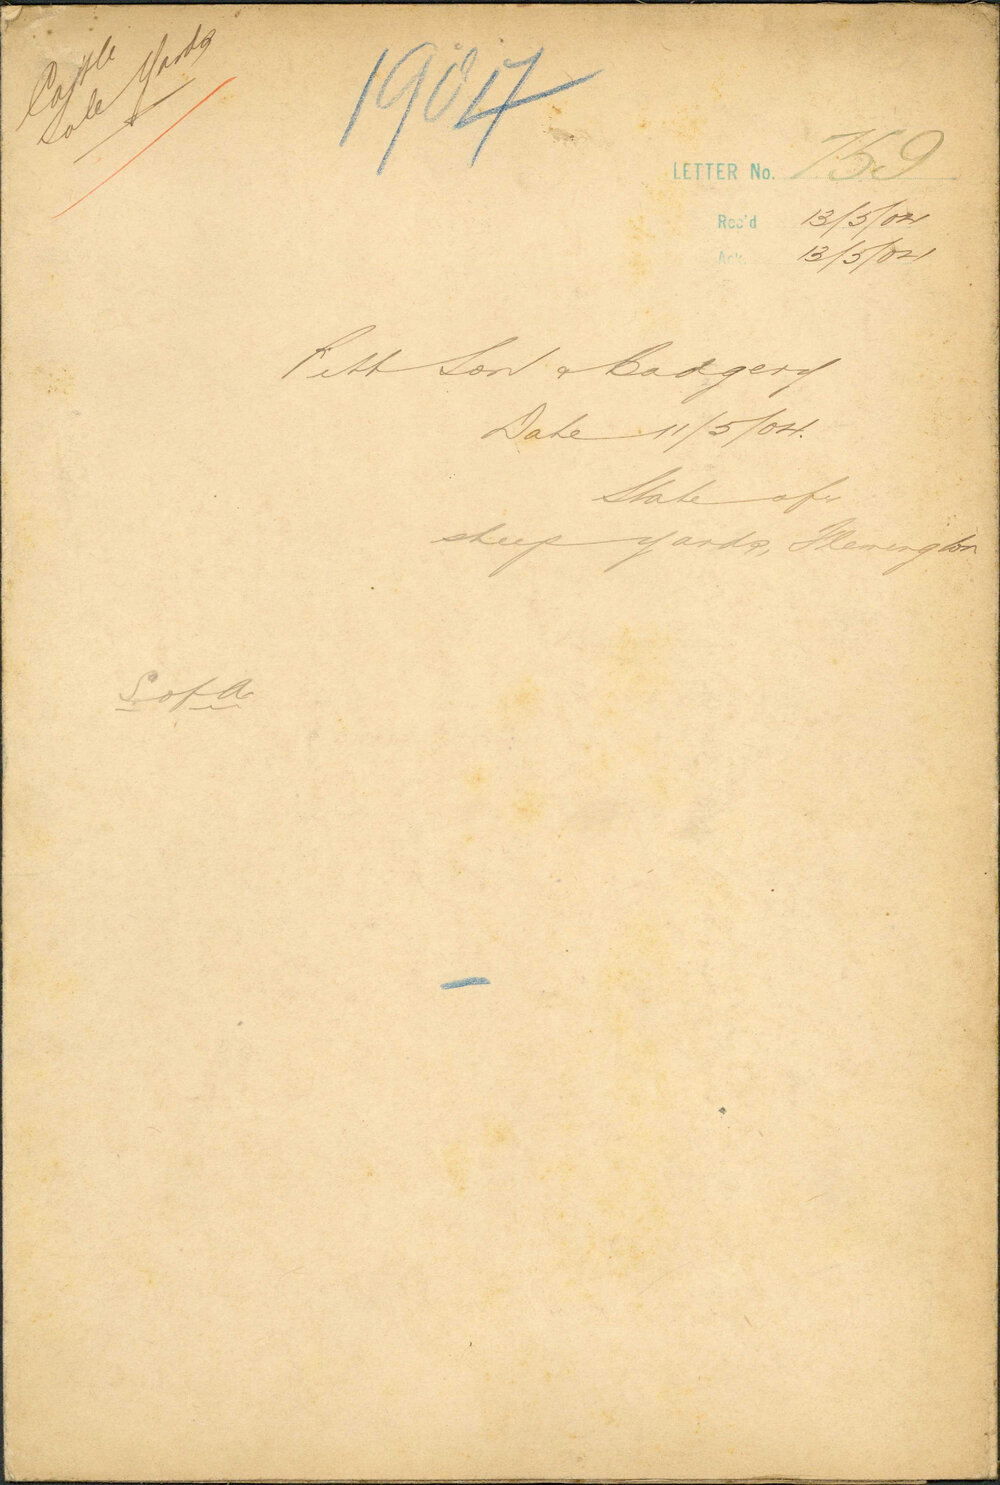 Cattle
Sale Yards
1904
LETTER No. 759
Rec'd 13/5/04
Ack. 13/5/04
Pitt Son & Badgery
Date 11/5/04.
State of
sheep yards, Flemington
S of A